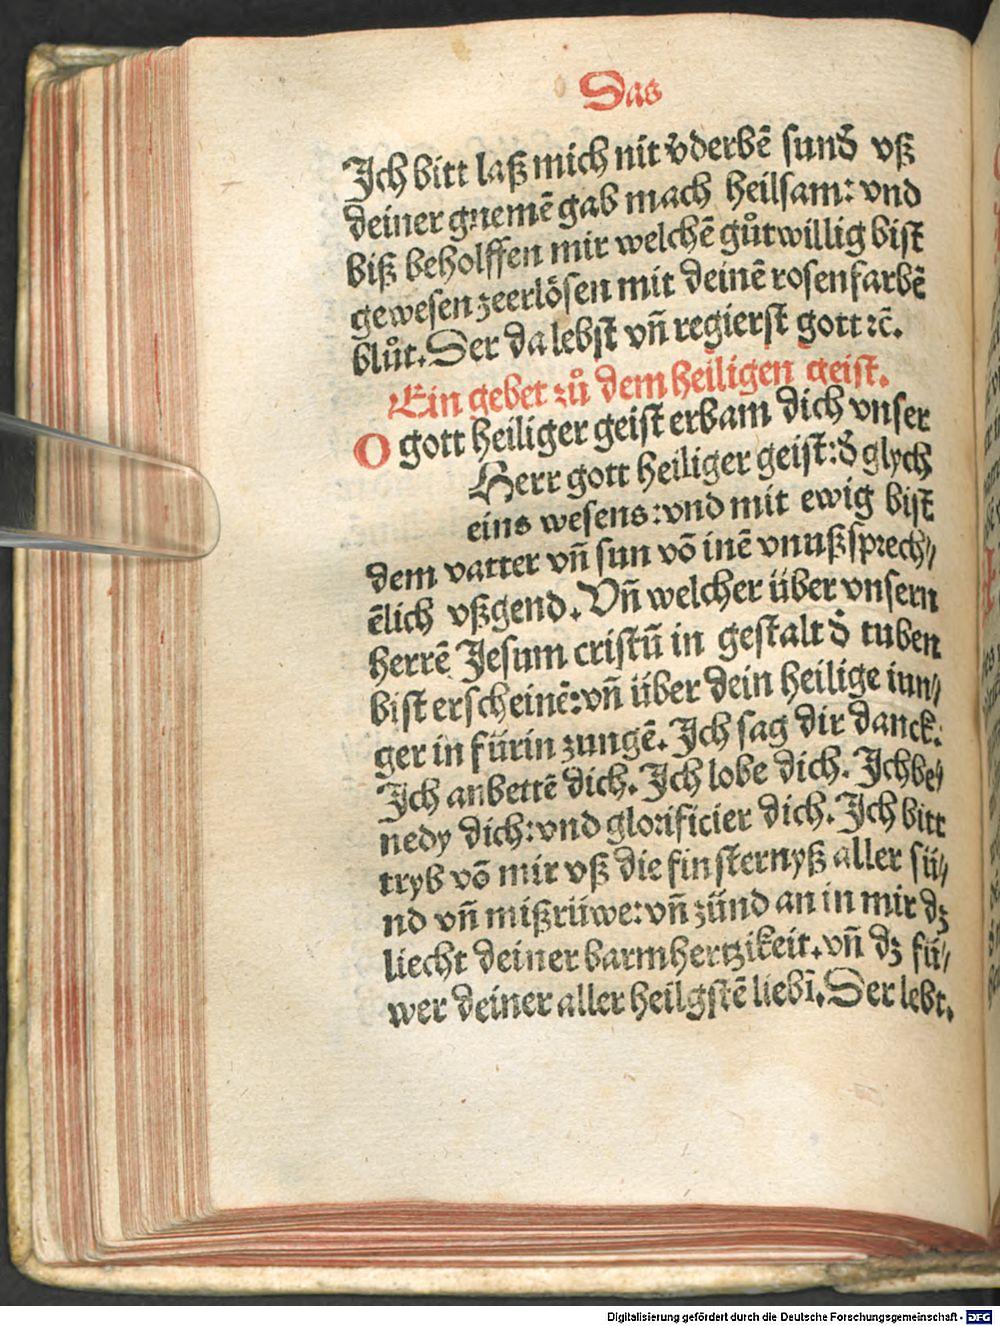 Das
Jch bitt laß mich nit v̄derbē sund̄ vß
deiner gnemē gab mach heilsam: vnd
biß beholffen mir welchē gůtwillig bist
gewesen zeerlösen mit deinē rosenfarbē
blůt. Der da lebst vn̄ regierst gott ꝛc̄.
Ein gebet zů dem heiligen geist.
O gott heiliger geist erbam dich vnser
Herr gott heiliger geist: d̄ glych
eins wesens: vnd mit ewig bist
dem vatter vn̄ sun vō inē vnußsprech//
ēlich vßgend. Vn̄ welcher über vnsern
herrē Jesum cristū in gestalt d̄ tuben
bist erscheinē: vn̄ über dein heilige iun//
ger in fürin zungē. Jch sag dir danck:
Jch anbettē dich. Jch lobe dich. Jch be//
nedy dich: vnd glorificier dich. Jch bitt
tryb vō mir vß die finsternyß aller sü//
nd vn̄ mißrüwe: vn̄ zünd an in mir dz
liecht deiner barmhertzikeit. vn̄ dz fü//
wer deiner aller heilgstē liebī. Der lebt.
Digitalisierung gefördert durch die Deutsche Forschungsgemeinschaft - DFG